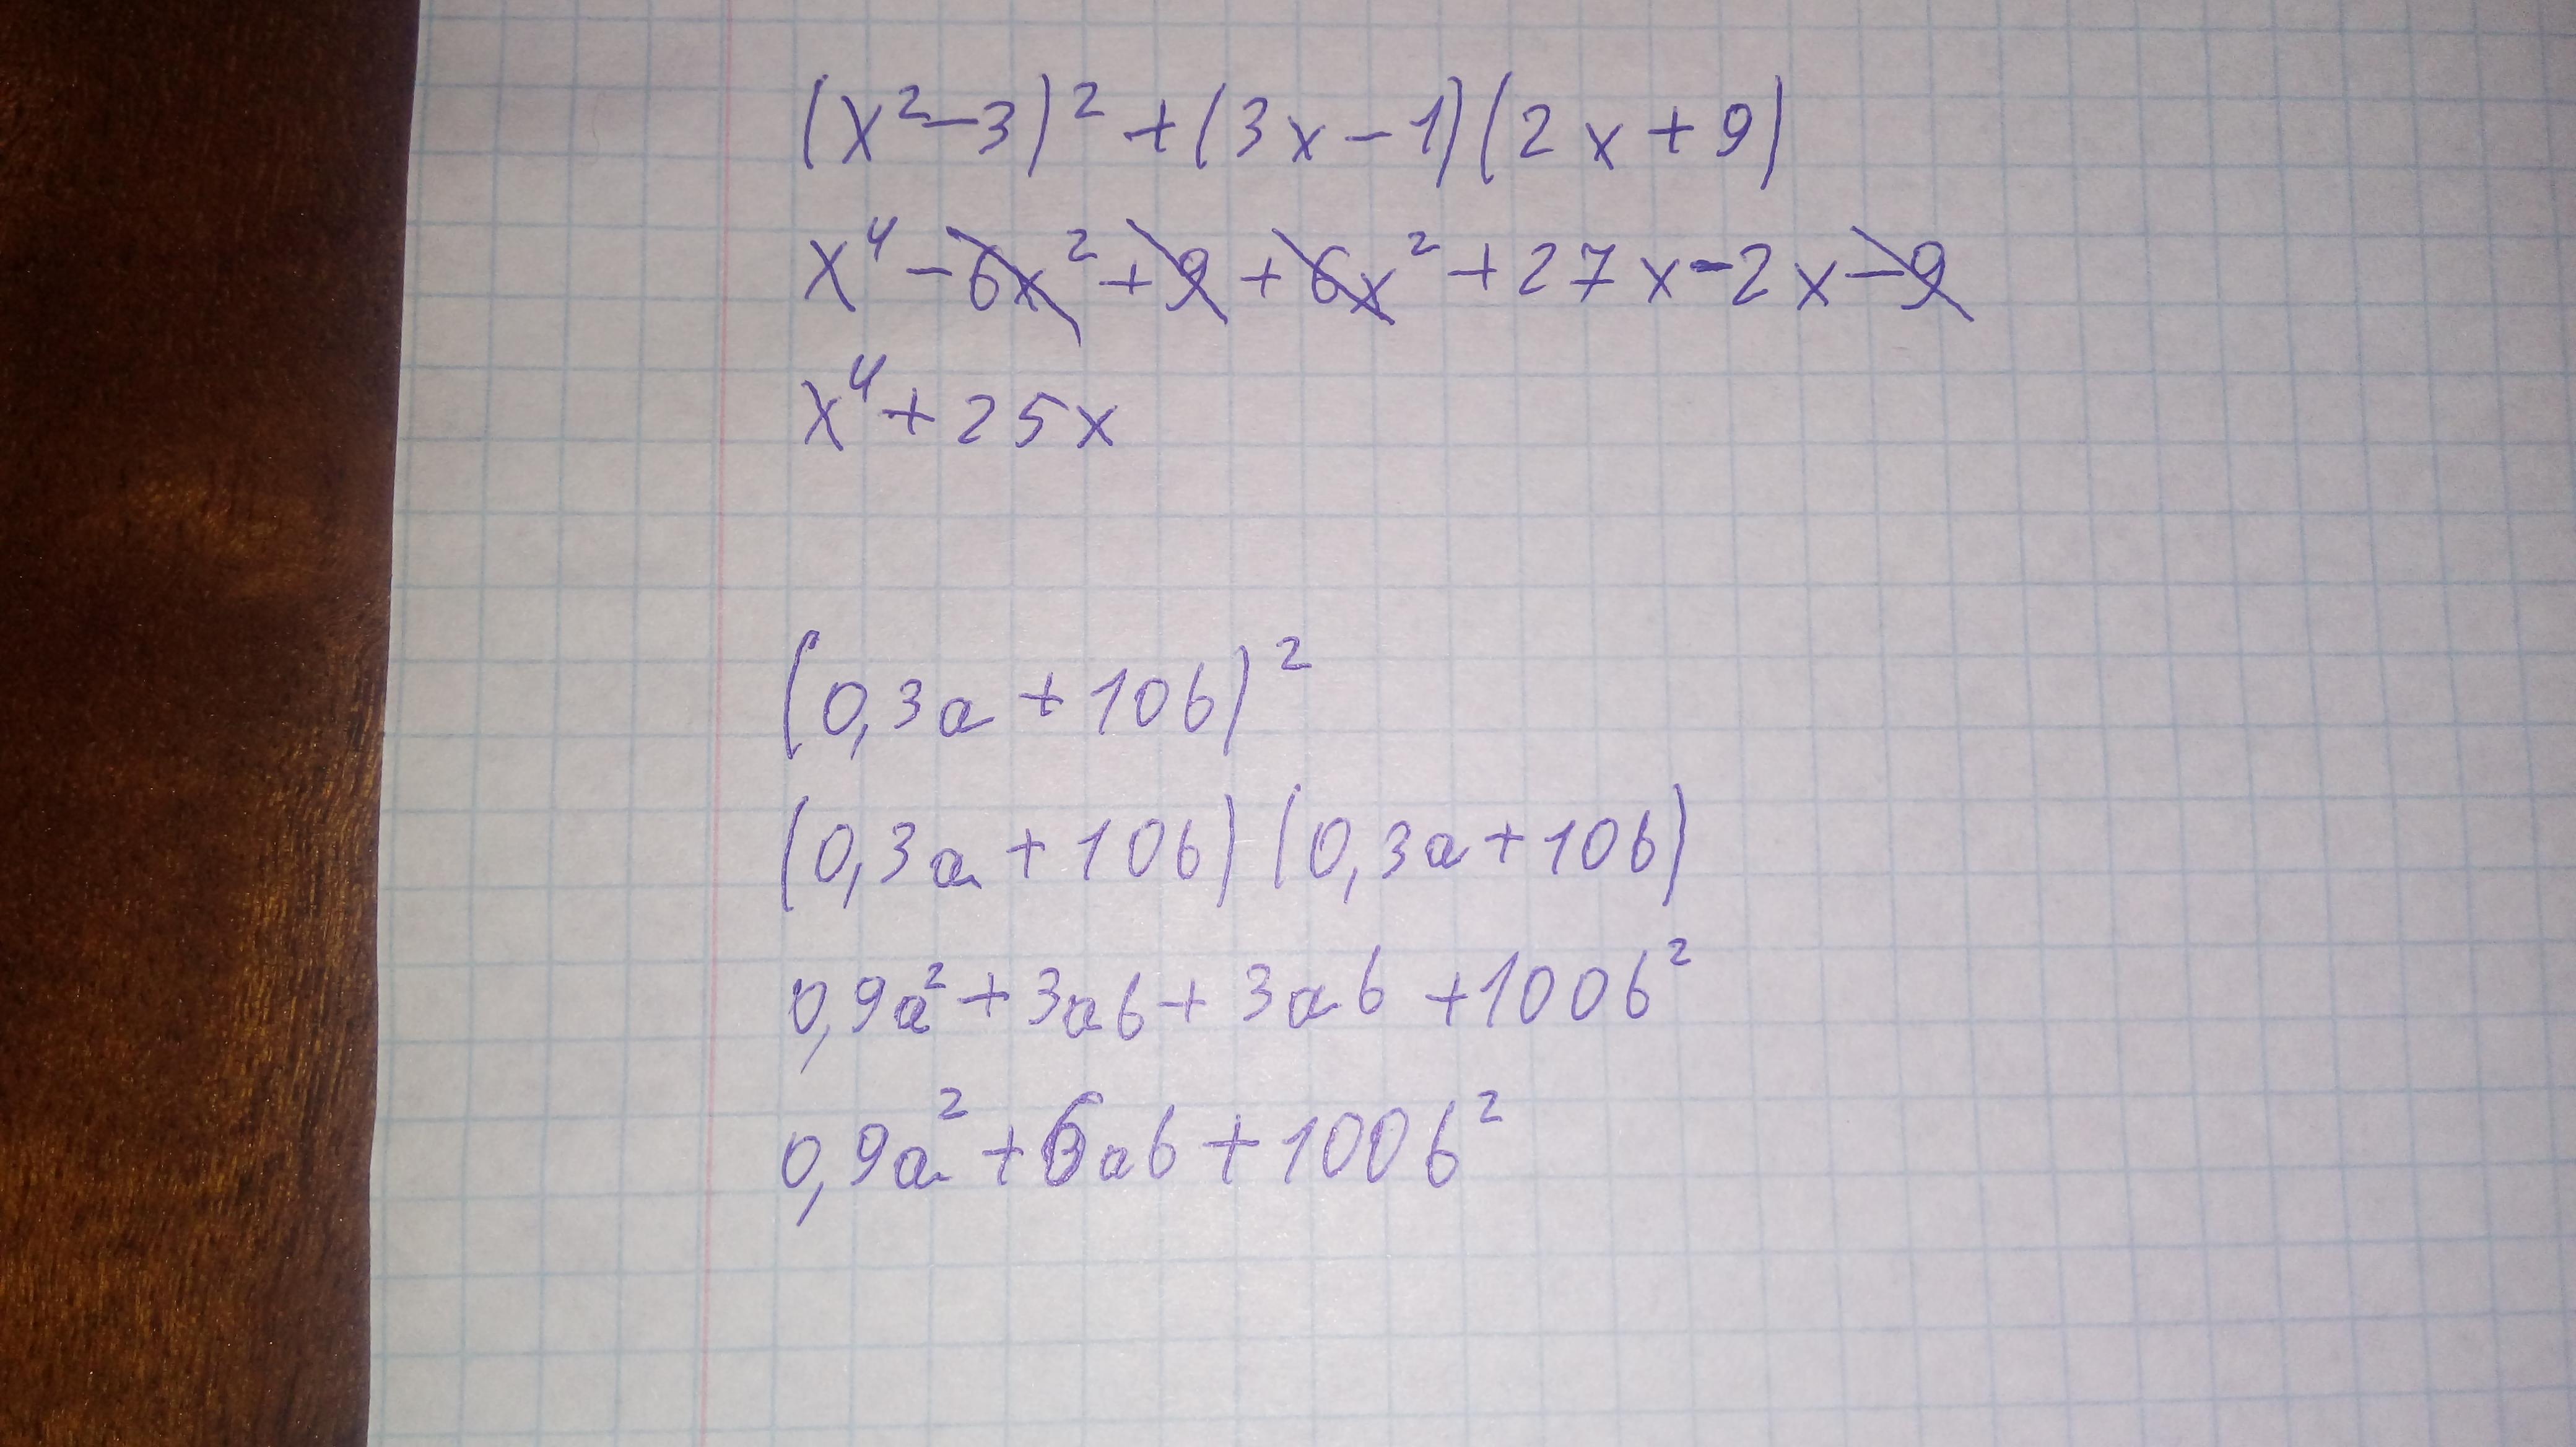 (x²-3)² + (3x-1)(2x+9)
x⁴ - 6x² + 9 + 6x² + 27x - 2x - 9
x⁴ + 25x
(0,3a + 10b)²
(0,3a + 10b)(0,3a + 10b)
0,9a² + 3ab + 3ab + 100b²
0,9a² + 6ab + 100b²